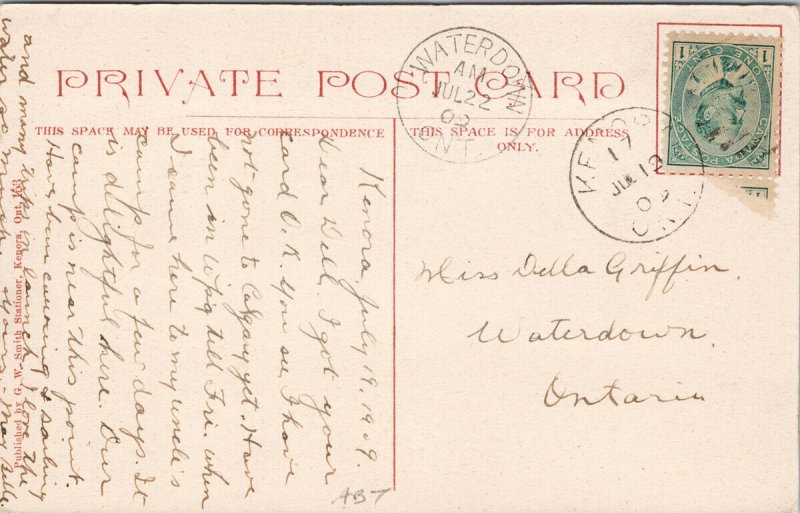 PRIVATE POST CARD
THIS SPACE MAY BE USED FOR CORRESPONDENCE
THIS SPACE IS FOR ADDRESS
ONLY.
WATERDOWN
AM
JUL 22
09
ONT.
KENORA
17
JUL 19
09
ONT.
1 ONE CENT 1
CANADA POSTAGE
Kenora, July 19, 1909.
Dear Dell. I got your
card O.K. You see I have
not gone to Calgary yet. Have
been in W'peg till Fri. when
I came here to my uncle's
camp for a few days. It
is delightful here. Our
camp is near this point.
Have been canoeing & sailing
and many trips in launch. I love the
water so much. Yours, Max Belle.
Miss Della Griffin,
Waterdown,
Ontario
Published by G. W. Smith Stationer, Kenora, Ont.
ABT